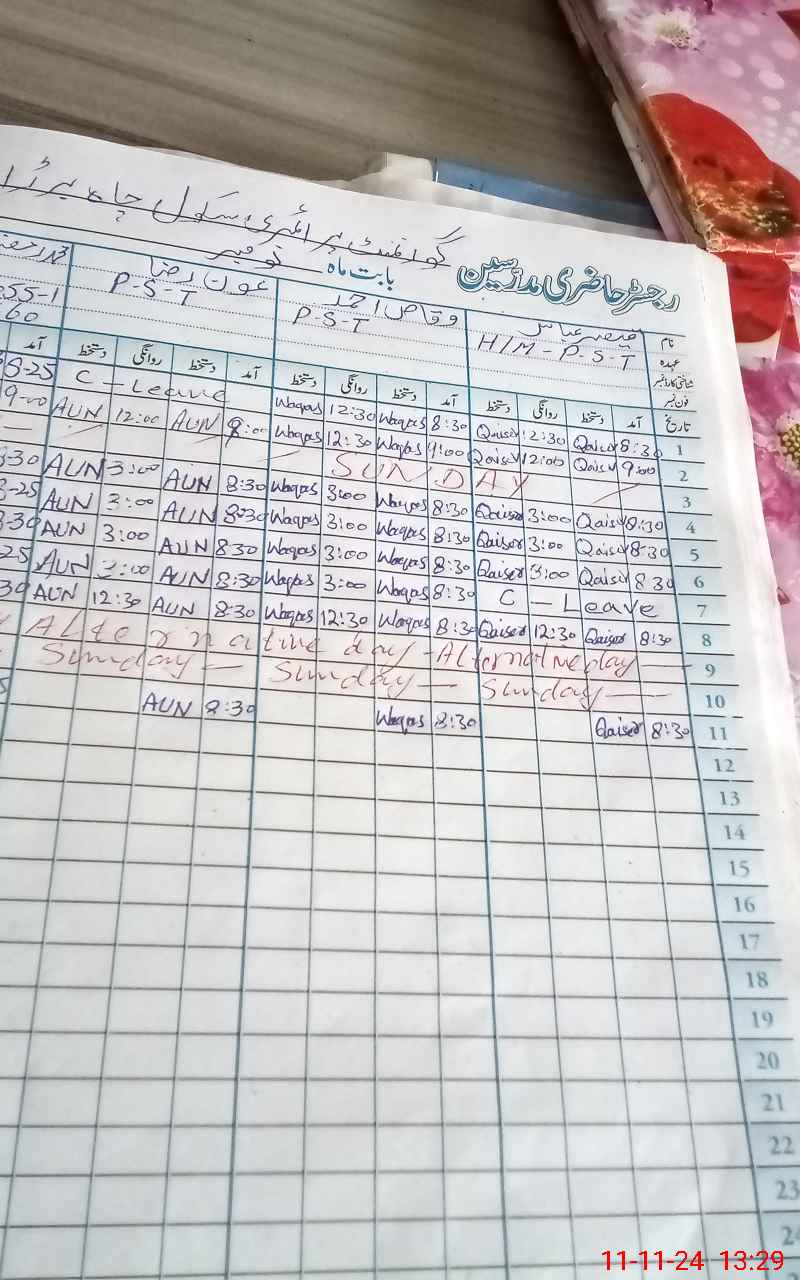 گورنمنٹ پرائمری سکول چاہ
رجسٹر حاضری مدرسین بابت ماہ نومبر
نام قیصر عباس وقاص احمد عون رضا
عہدہ H/M-P-S-T P-S-T P-S-T
شناختی کارڈ نمبر 55-1
فون نمبر 60
تاریخ آمد دستخط روانگی دستخط آمد دستخط روانگی دستخط آمد دستخط روانگی دستخط آمد
1 8:30 Qaiser 12:30 Qaiser 8:30 Waqas 12:30 Waqas C-Leave 8-25
2 9:00 Qaiser 12:00 Qaiser 9:00 Waqas 12:30 Waqas 9:00 AUN 12:00 AUN 9-00
3 SUNDAY
4 8:30 Qaiser 3:00 Qaiser 8:30 Waqas 3:00 Waqas 8:30 AUN 3:00 AUN 8-30
5 8:30 Qaiser 3:00 Qaiser 8:30 Waqas 3:00 Waqas 8:30 AUN 3:00 AUN 8-25
6 8:30 Qaiser 3:00 Qaiser 8:30 Waqas 3:00 Waqas 8:30 AUN 3:00 AUN 8-30
7 C-Leave 8:30 Waqas 3:00 Waqas 8:30 AUN 3:00 AUN 25
8 8:30 Qaiser 12:30 Qaiser 8:30 Waqas 12:30 Waqas 8:30 AUN 12:30 AUN 30
9 Alternative day - Alternative day
10 Sunday - Sunday - Sunday
11 8:30 Qaiser 8:30 Waqas 8:30 AUN
12
13
14
15
16
17
18
19
20
21
22
23
11-11-24 13:29